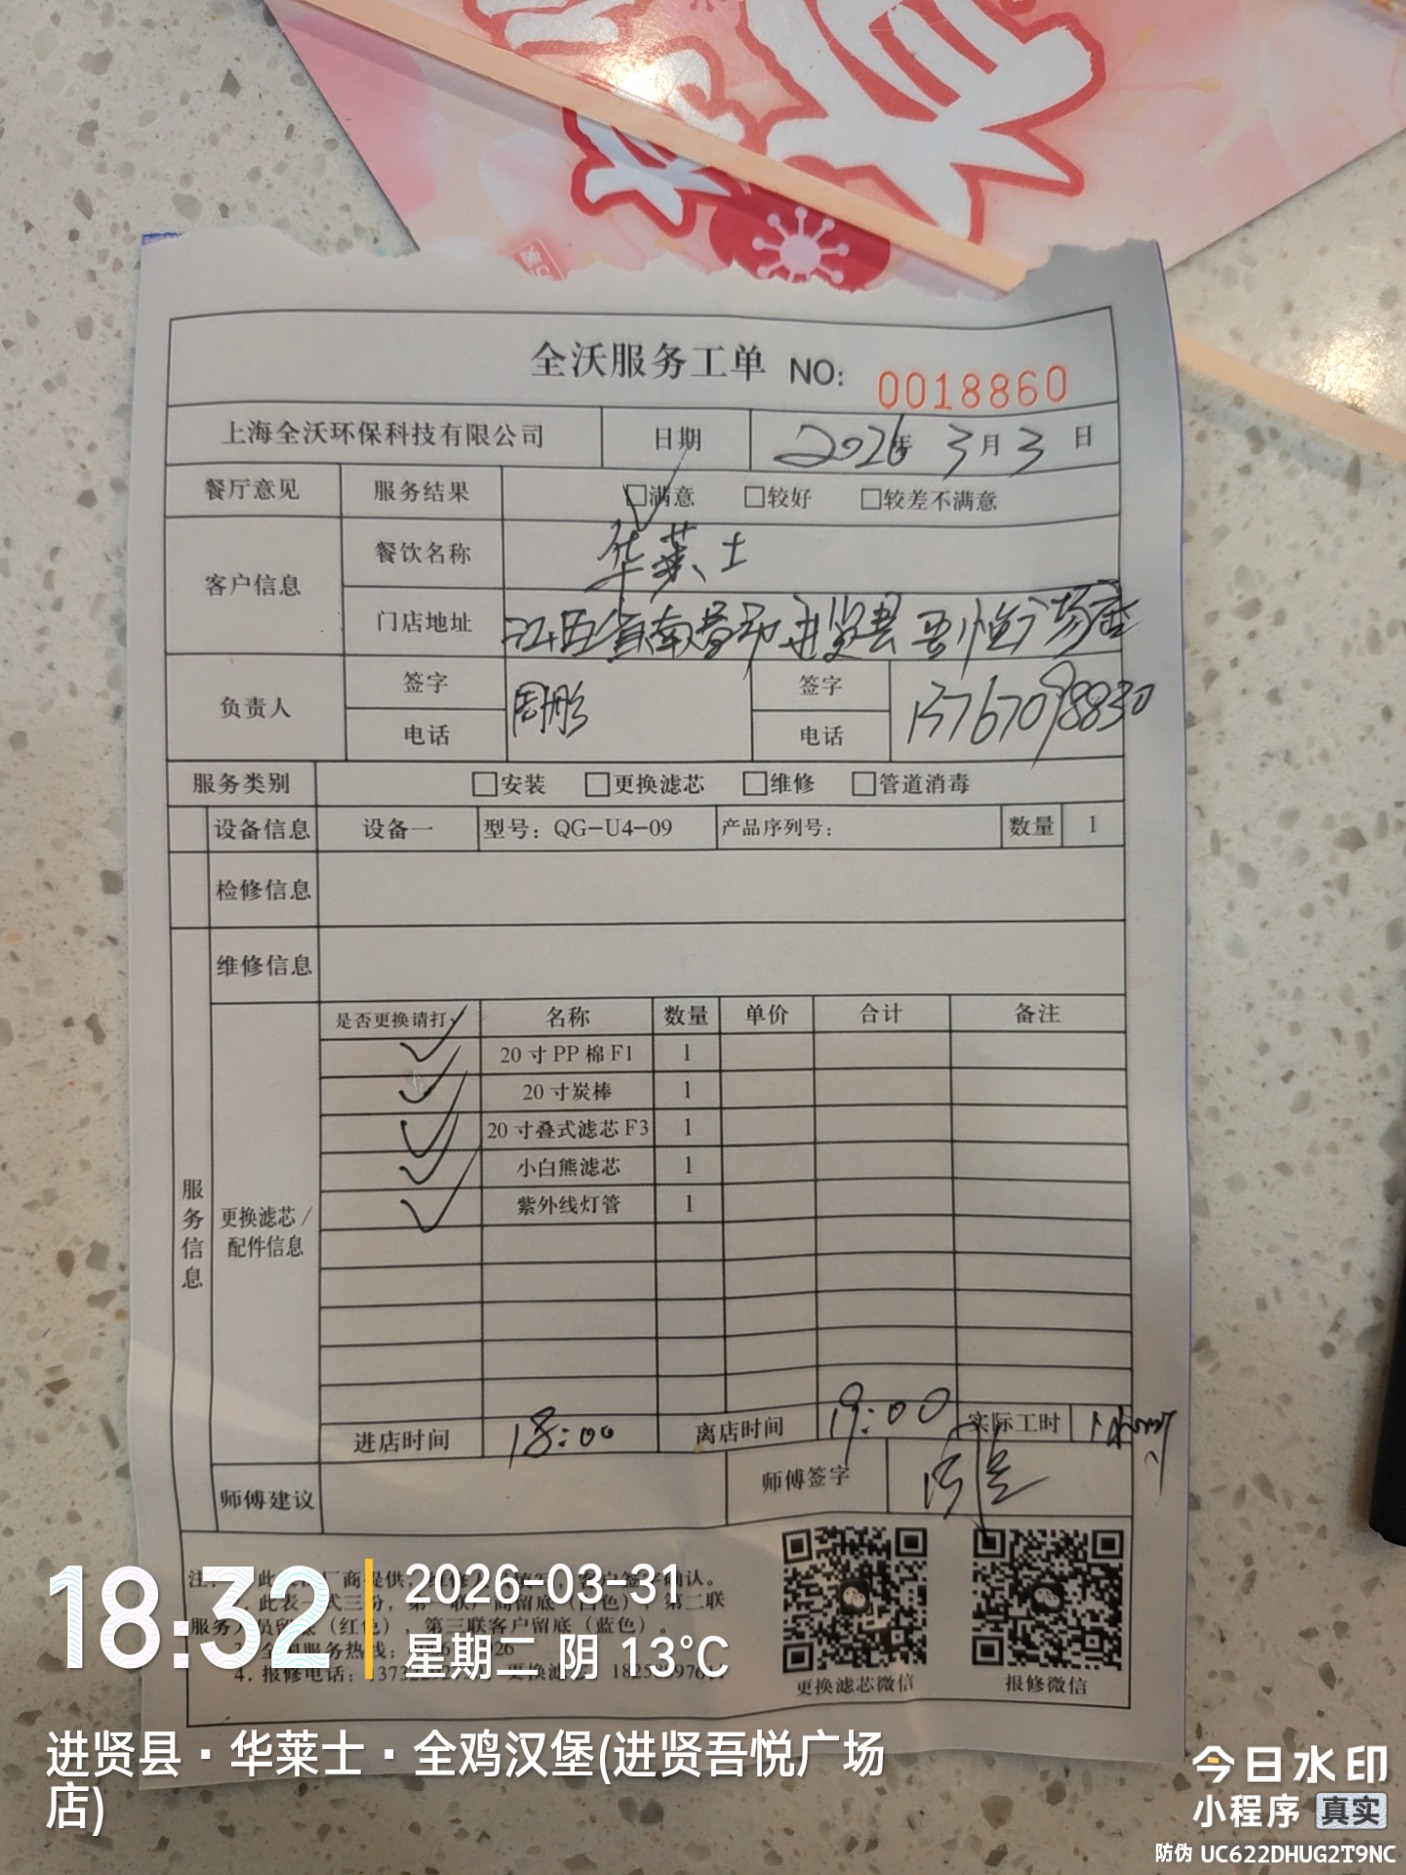 全沃服务工单 NO: 0018860
上海全沃环保科技有限公司 日期 2026年 3月 3 日
餐厅意见 服务结果 □满意 □较好 □较差不满意
客户信息 餐饮名称 华莱士
门店地址 江西省南昌市进贤县吾悦广场店
负责人 签字 周彤 签字
电话 电话 13767098830
服务类别 □安装 □更换滤芯 □维修 □管道消毒
设备信息 设备一 型号：QG-U4-09 产品序列号： 数量 1
检修信息
维修信息
服务信息
更换滤芯/
配件信息
是否更换请打✓ 名称 数量 单价 合计 备注
✓ 20寸PP棉F1 1
✓ 20寸炭棒 1
✓ 20寸叠式滤芯F3 1
✓ 小白熊滤芯 1
✓ 紫外线灯管 1
进店时间 18:00 离店时间 19:00 实际工时 1小时
师傅建议 师傅签字
此表一式三份，第一联厂商留底（白色），第二联
服务人员留底（红色），第三联客户留底（蓝色）。
全国服务热线：
4. 报修电话：
更换滤芯微信 报修微信
18:32
2026-03-31
星期二 阴 13°C
进贤县·华莱士·全鸡汉堡(进贤吾悦广场
店)
今日水印
小程序 真实
防伪 UC622DHUG2T9NC